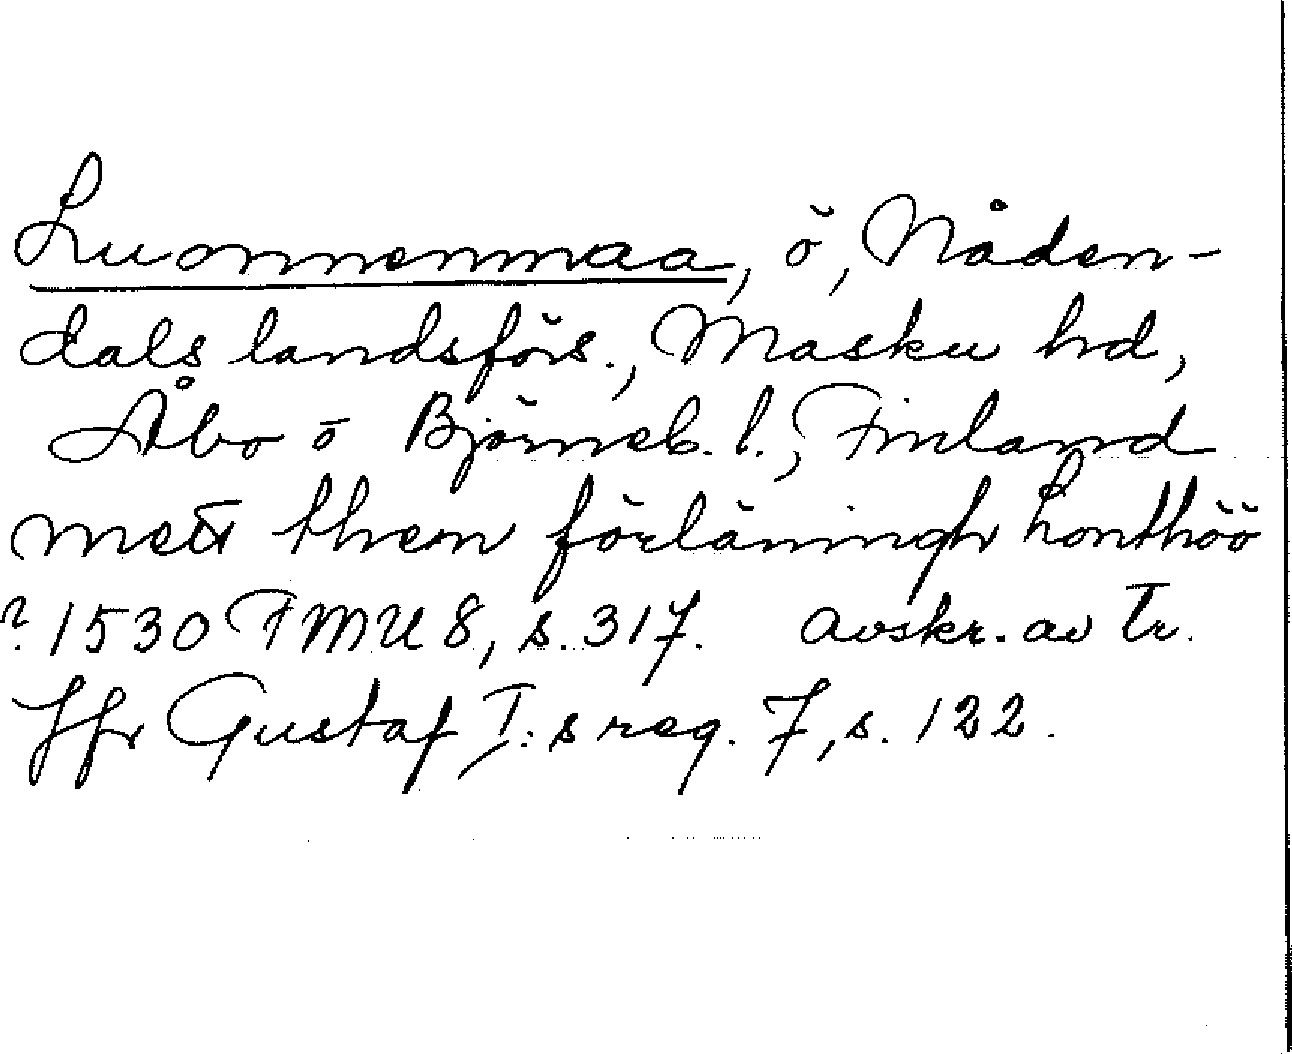 Luonnenmaa, ö, Nåden-
dals landsförs., Masku hd,
Åbo o Björneb. l., Finland
mett them förläningh Lonthöö
? 1530 FMU 8, s. 317. avskr. av tr.
Jfr Gustaf I:s reg. 7, s. 122.